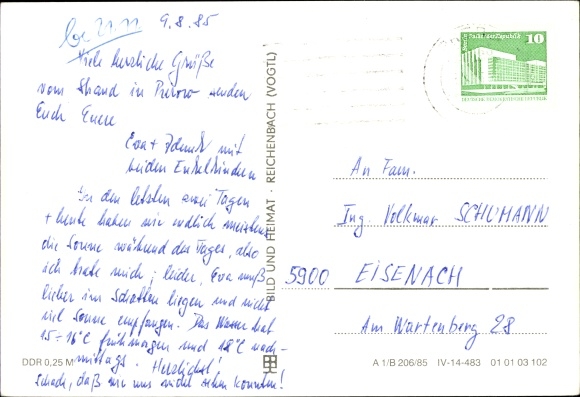 9.8.85
Viele herzliche Grüße
vom Strand in Prerow senden
Euch Eure
Eva + Zdeněk mit
beiden Enkelkindern
In den letzten zwei Tagen
+ heute haben wir endlich meistens
die Sonne während des Tages, also
ich brate mich; leider, Eva muß
lieber im Schatten liegen und nicht
viel Sonne empfangen. Das Wasser hat
15-16°C frühmorgen und 18°C nach-
mittags. Herzlichst!
Schade, daß wir uns nicht sehen konnten!
DDR 0,25 M
BILD UND HEIMAT · REICHENBACH (VOGTL)
10
Berlin, Palast der Republik
DEUTSCHE DEMOKRATISCHE REPUBLIK
An Fam.
Ing. Volkmar SCHUMANN
5900 EISENACH
Am Wartenberg 28
A 1/B 206/85 IV-14-483 01 01 03 102